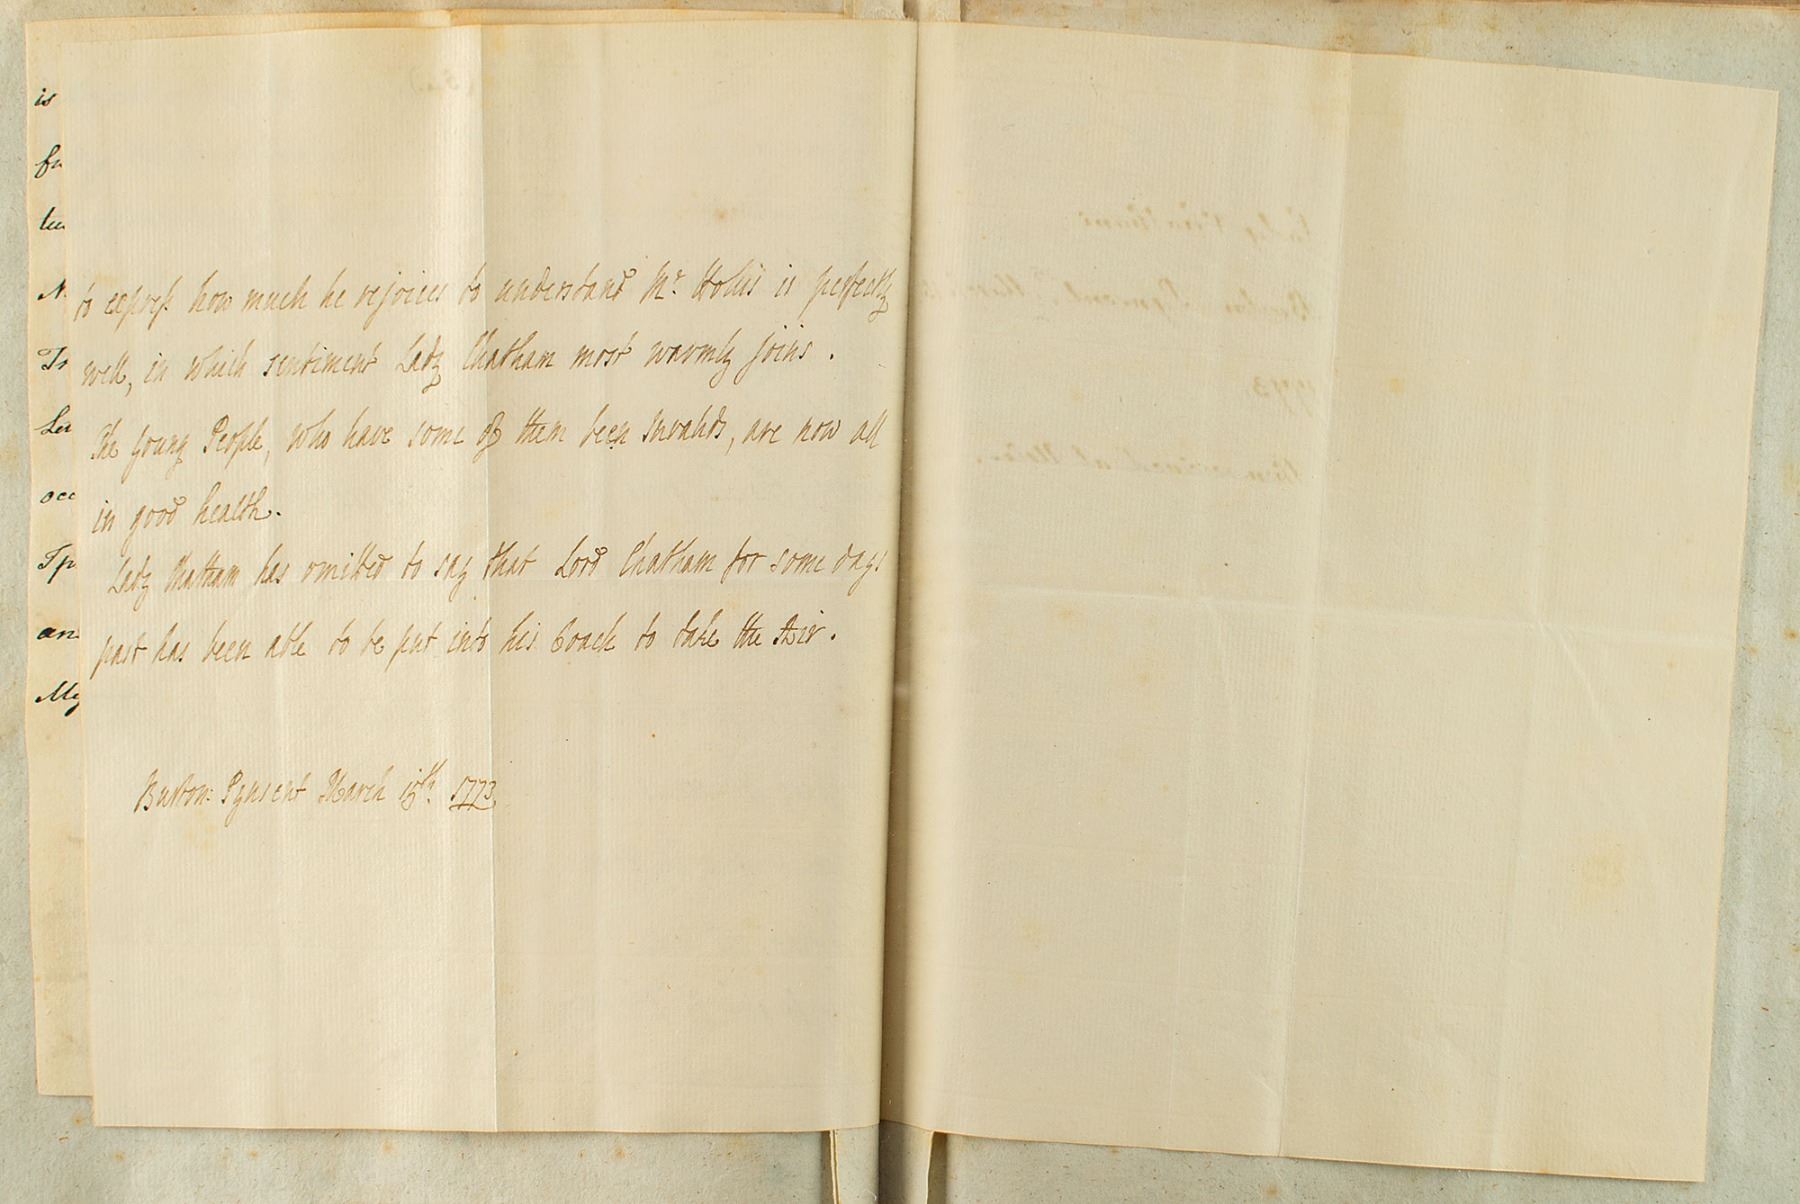 to express how much he rejoices to understand Mr. Hollis is perfectly
well, in which sentiment Lady Chatham most warmly joins.
The young People, who have some of them been Invalids, are now all
in good health.
Lady Chatham has omitted to say that Lord Chatham for some days
past has been able to be put into his Coach to take the Air.
Burton-Pynsent March 15th. 1773.
is
Tr
occ
an
My